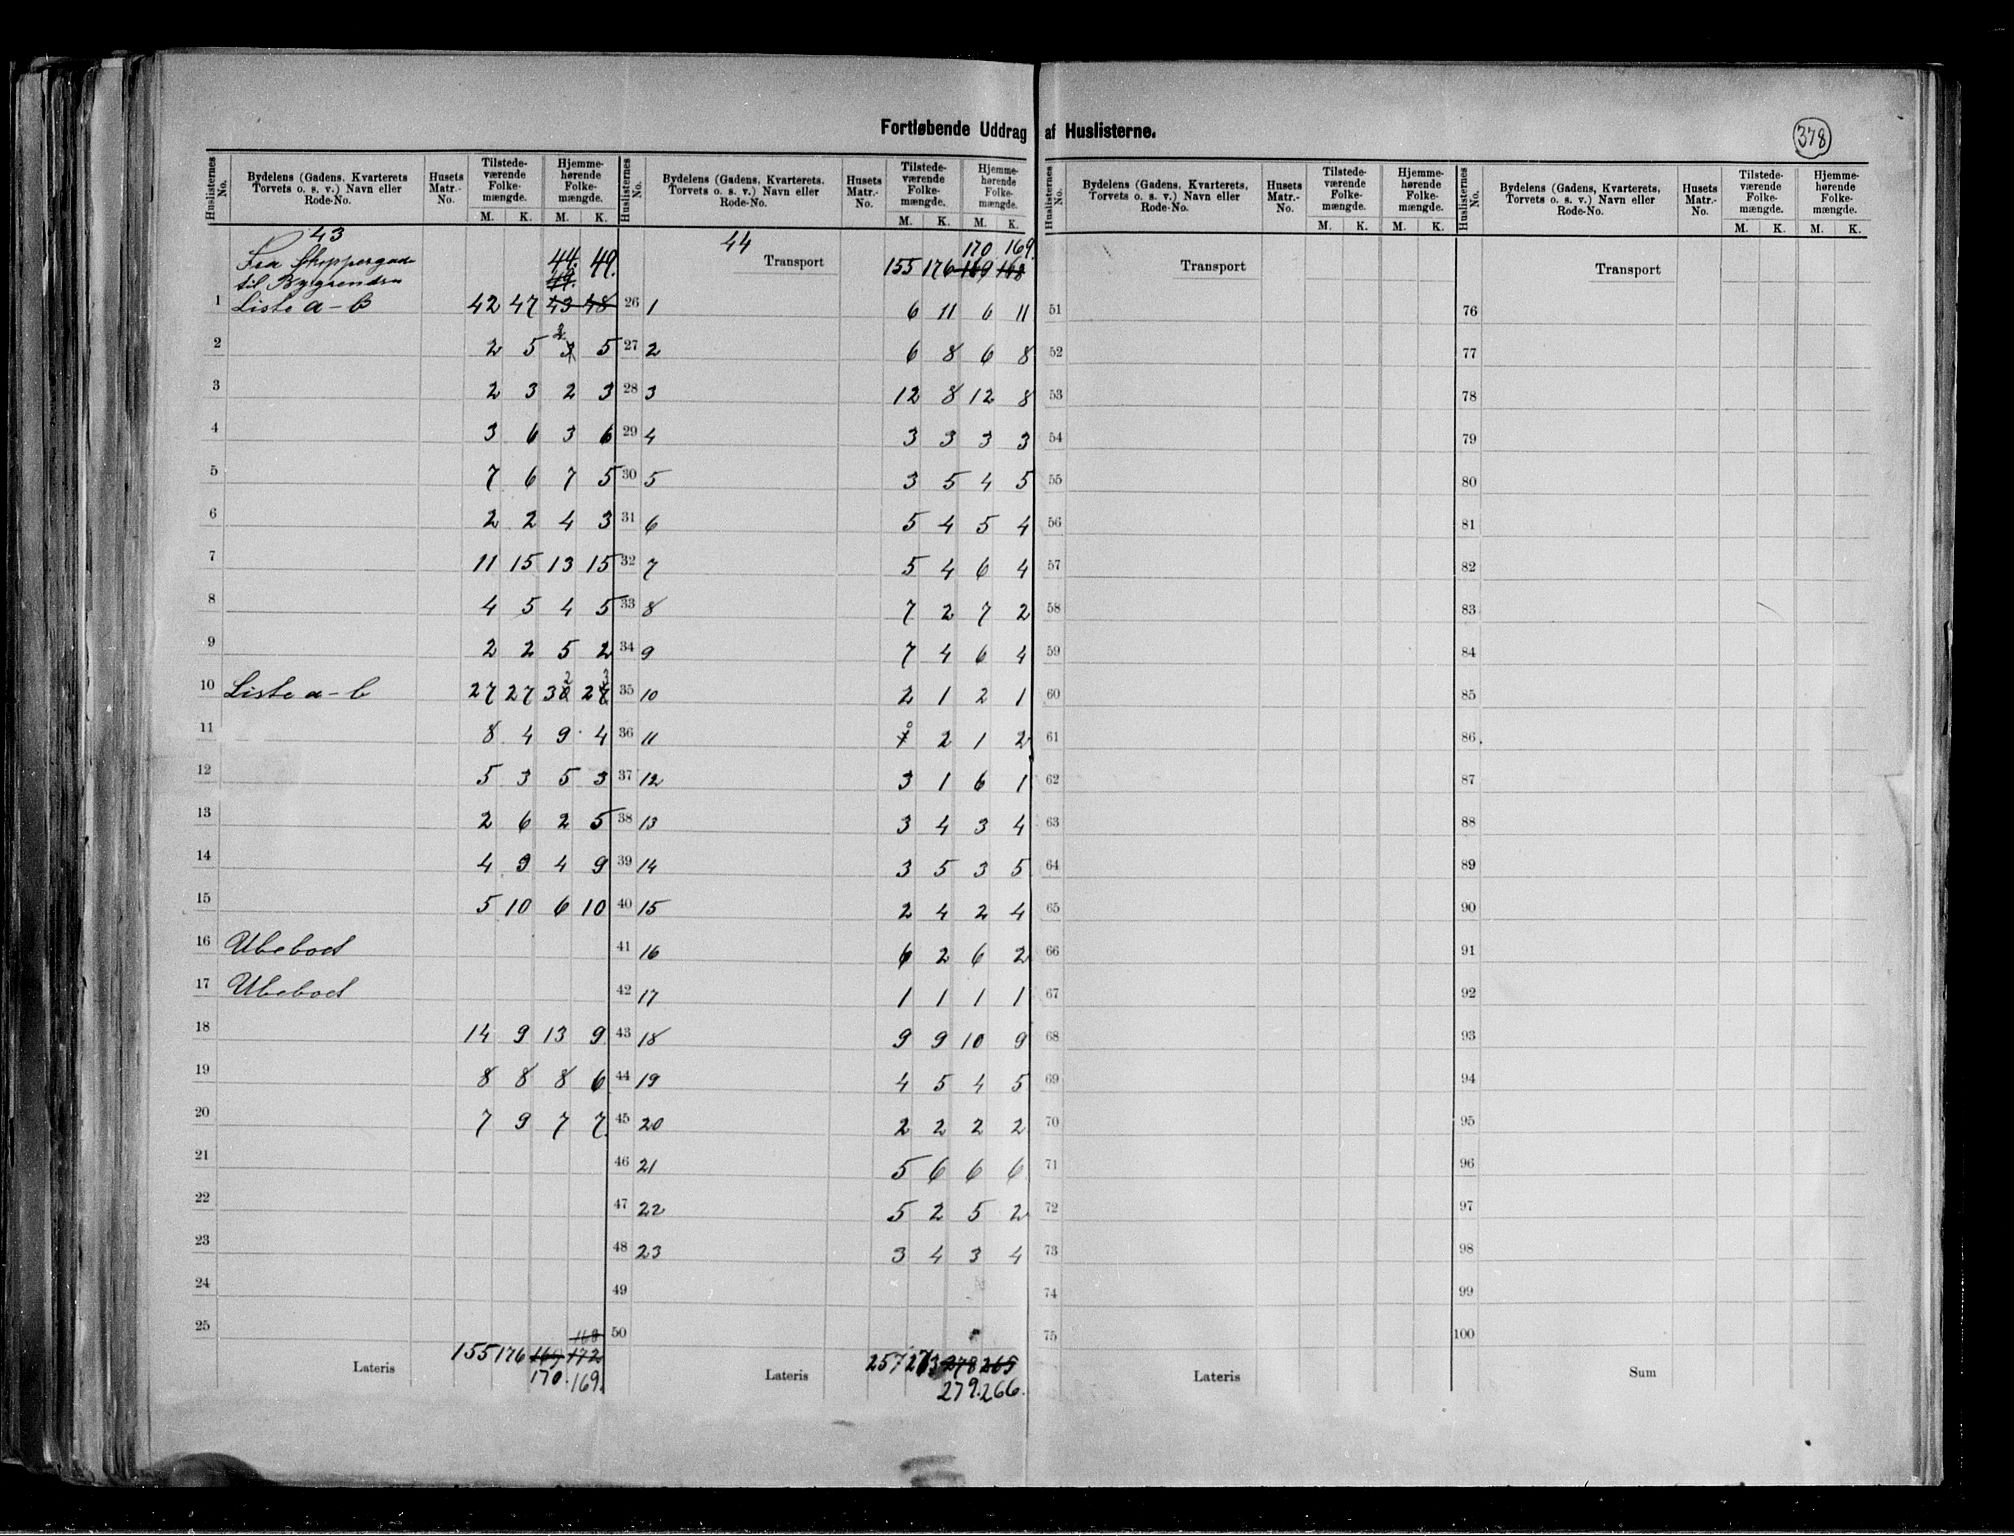 Fortløbende Uddrag af Huslisterne.
378
Huslisternes No. | Bydelens (Gadens, Kvarterets Torvets o. s. v.) Navn eller Rode-No. | Husets Matr.-No. | Tilstede-værende Folke-mængde. M. K. | Hjemme-hørende Folke-mængde. M. K.
43
til Bygrændsen
44. 49.
1 Liste a-B 42 47 43 48
2 2 5 2 5
3 2 3 2 3
4 3 6 3 6
5 7 6 7 5
6 2 2 4 3
7 11 15 13 15
8 4 5 4 5
9 2 2 5 2
10 Liste a-b 27 27 32 23
11 8 4 9 4
12 5 3 5 3
13 2 6 2 5
14 4 9 4 9
15 5 10 6 10
16 Ubeboet
17 Ubeboet
18 14 9 13 9
19 8 8 8 6
20 7 9 7 7
21
22
23
24
25
168
Lateris 155 176 169 172
170. 169.
Huslisternes No. | Bydelens (Gadens, Kvarterets, Torvets o. s. v.) Navn eller Rode-No. | Husets Matr.-No. | Tilstede-værende Folke-mængde. M. K. | Hjemme-hørende Folke-mængde. M. K.
44 170 169.
Transport 155 176 169 168
26 1 6 11 6 11
27 2 6 8 6 8
28 3 12 8 12 8
29 4 3 3 3 3
30 5 3 5 4 5
31 6 5 4 5 4
32 7 5 4 6 4
33 8 7 2 7 2
34 9 7 4 6 4
35 10 2 1 2 1
36 11 0 2 1 2
37 12 3 1 6 1
38 13 3 4 3 4
39 14 3 5 3 5
40 15 2 4 2 4
41 16 6 2 6 2
42 17 1 1 1 1
43 18 9 9 10 9
44 19 4 5 4 5
45 20 2 2 2 2
46 21 5 6 6 6
47 22 5 2 5 2
48 23 3 4 3 4
49
50
Lateris 257 273 278 265
279. 266.
Huslisternes No. | Bydelens (Gadens, Kvarterets, Torvets o. s. v.) Navn eller Rode-No. | Husets Matr.-No. | Tilstede-værende Folke-mængde. M. K. | Hjemme-hørende Folke-mængde. M. K.
Transport
51
52
53
54
55
56
57
58
59
60
61
62
63
64
65
66
67
68
69
70
71
72
73
74
75
Lateris
Huslisternes No. | Bydelens (Gadens, Kvarterets, Torvets o. s. v.) Navn eller Rode-No. | Husets Matr.-No. | Tilstede-værende Folke-mængde. M. K. | Hjemme-hørende Folke-mængde. M. K.
Transport
76
77
78
79
80
81
82
83
84
85
86
87
88
89
90
91
92
93
94
95
96
97
98
99
100
Sum